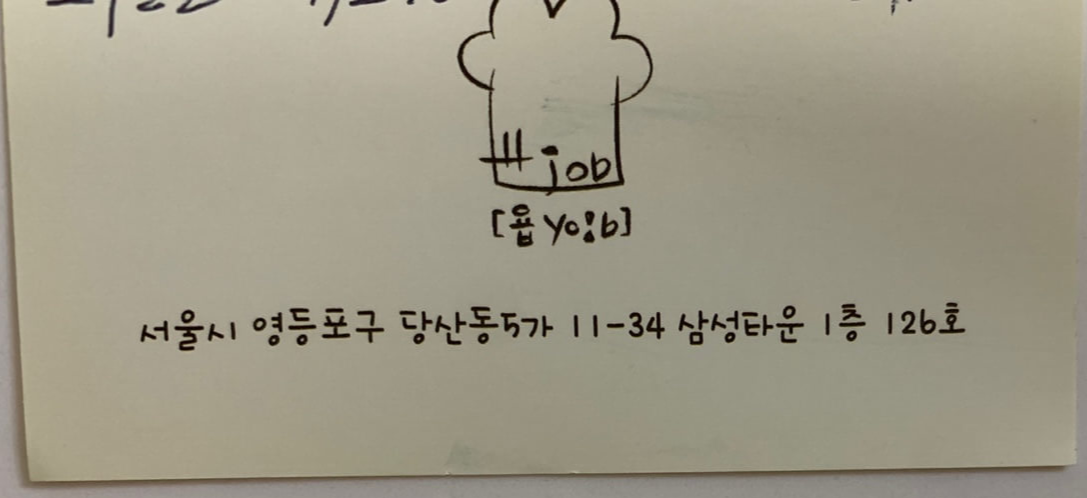 job
[욥 yo:b]
서울시 영등포구 당산동5가 11-34 삼성타운 1층 126호